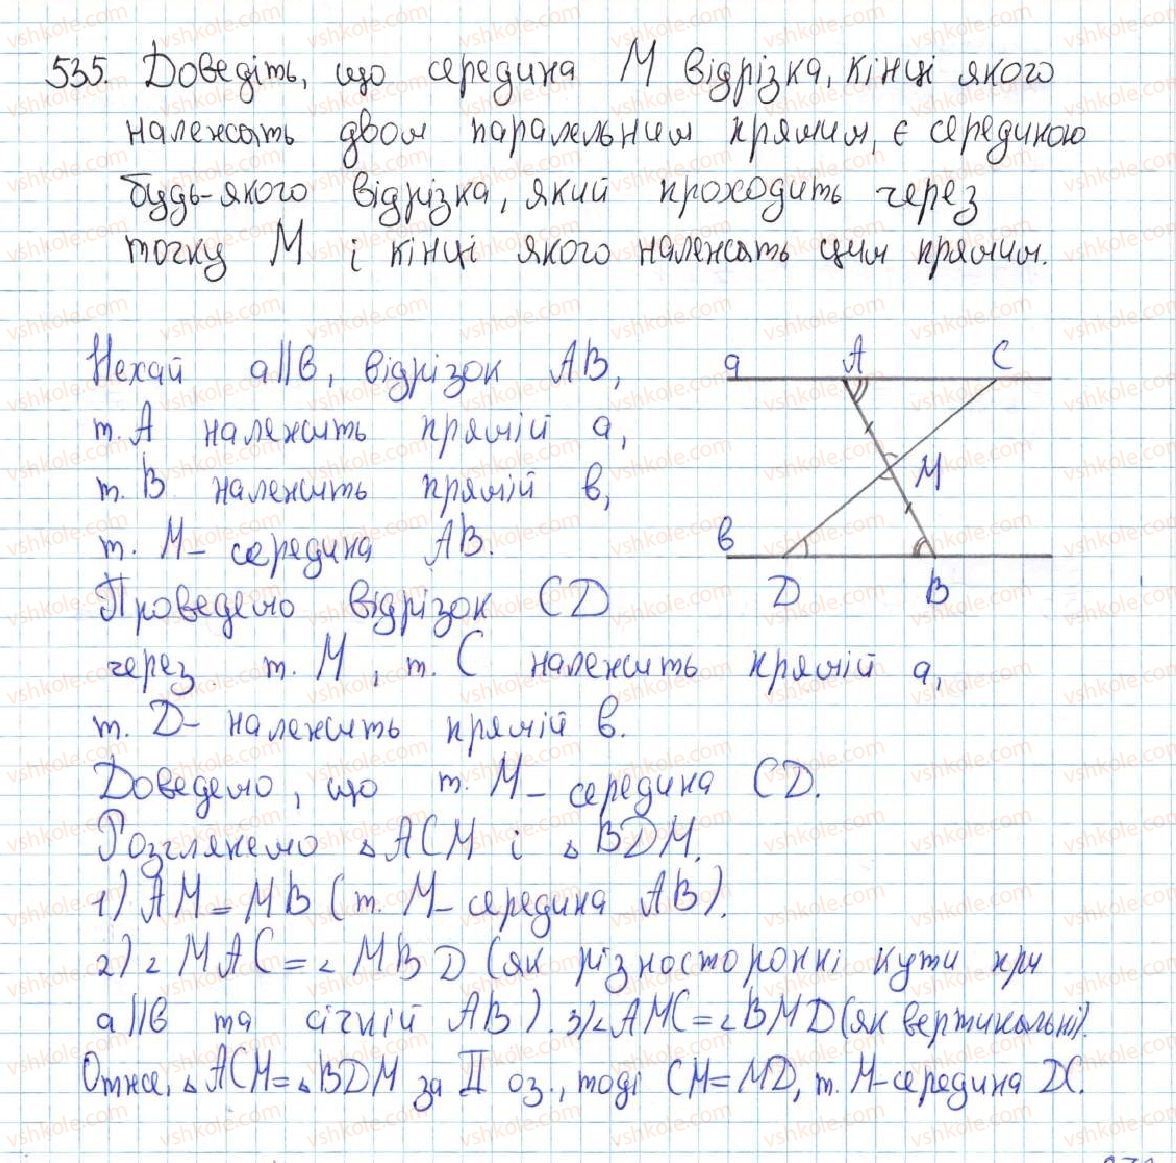 535. Доведіть, що середина М відрізка, кінці якого
належать двом паралельним прямим, є серединою
будь-якого відрізка, який проходить через
точку М і кінці якого належать цим прямим.
Нехай a||в, відрізок АВ,
т. А належить прямій а,
т. В належить прямій в,
т. М – середина АВ.
Проведемо відрізок CD
через т. М, т. С належить прямій а,
т. D – належить прямій в.
Доведемо, що т. М – середина CD.
Розглянемо △ACM і △BDM.
1) AM = MB (т. М – середина АВ).
2) ∠MAC = ∠MBD (як різносторонні кути при
a||в та січній АВ). 3) ∠AMC = ∠BMD (як вертикальні).
Отже, △ACM = △BDM за II оз., тоді CM = MD, т. М – середина DC.
a A C
M
в
D B
vshkole.com